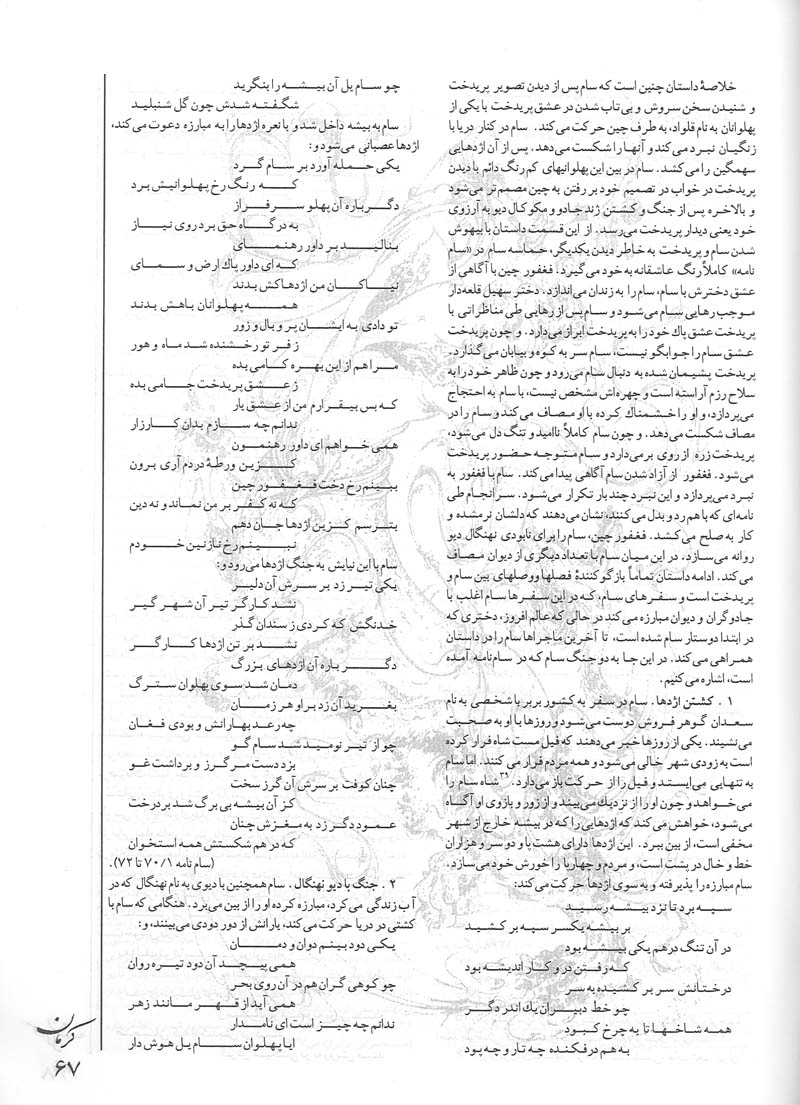 خلاصهٔ داستان چنین است که سام پس از دیدن تصویر پریدخت
و شنیدن سخن سروش و بی‌تاب شدن در عشق پریدخت با یکی از
پهلوانان به نام قلواد، به طرف چین حرکت می‌کند. سام در کنار دریا با
زنگیان نبرد می‌کند و آنها را شکست می‌دهد. پس از آن اژدهایی
سهمگین را می‌کشد. سام در بین این پهلوانیهای کم رنگ دائم با دیدن
پریدخت در خواب در تصمیم خود بر رفتن به چین مصمم‌تر می‌شود
و بالاخره پس از جنگ و کشتن ژند جادو و مکوکال دیو به آرزوی
خود یعنی دیدار پریدخت می‌رسد. از این قسمت داستان با بیهوش
شدن سام و پریدخت به خاطر دیدن یکدیگر، حماسه سام در «سام
نامه» کاملاً رنگ عاشقانه به خود می‌گیرد. فغفور چین با آگاهی از
عشق دخترش با سام، سام را به زندان می‌اندازد. دختر سهیل قلعه‌دار
موجب رهایی سام می‌شود و سام پس از رهایی طی مناظراتی با
پریدخت عشق پاك خود را به پریدخت ابراز می‌دارد. و چون پریدخت
عشق سام را جوابگو نیست، سام سر به کوه و بیابان می‌گذارد.
پریدخت پشیمان شده به دنبال سام می‌رود و چون ظاهر خود را به
سلاح رزم آراسته است و چهره‌اش مشخص نیست، با سام به احتجاج
می‌پردازد، و او را خشمناك کرده با او مصاف می‌کند و سام را در
مصاف شکست می‌دهد. و چون سام کاملاً ناامید و تنگ دل می‌شود،
پریدخت زره از روی برمی‌دارد و سام متوجه حضور پریدخت
می‌شود. فغفور از آزاد شدن سام آگاهی پیدا می‌کند. سام با فغفور به
نبرد می‌پردازد و این نبرد چند بار تکرار می‌شود. سرانجام طی
نامه‌ای که با هم رد و بدل می‌کنند، نشان می‌دهند که دلشان نرم شده و
کار به صلح می‌کشد. فغفور چین، سام را برای نابودی نهنگال دیو
روانه می‌سازد. در این میان سام با تعداد دیگری از دیوان مصاف
می‌کند. ادامه داستان تماماً بازگو کنندهٔ فصلها و وصلهای بین سام و
پریدخت است و سفرهای سام، که در این سفرها سام اغلب با
جادوگران و دیوان مبارزه می‌کند در حالی که عالم افروز، دختری که
در ابتدا دوستار سام شده است، تا آخرین ماجراها سام را در داستان
همراهی می‌کند. در این جا به دو جنگ سام که در سام‌نامه آمده
است، اشاره می‌کنیم.
۱ . کشتن اژدها. سام در سفر به کشور بربر با شخصی به نام
سعدان گوهر فروش دوست می‌شود و روزها با او به صحبت
می‌نشیند. یکی از روزها خبر می‌دهند که فیل مست شاه فرار کرده
است به زودی شهر خالی می‌شود و همه مردم فرار می‌کنند. اما سام
به تنهایی می‌ایستد و فیل را از حرکت باز می‌دارد.۳۹ شاه سام را
می‌خواهد و چون او را از نزدیك می‌بیند و از زور و بازوی او آگاه
می‌شود، خواهش می‌کند که اژدهایی را که در بیشه خارج از شهر
مخفی است، از بین ببرد. این اژدها دارای هشت پا و دو سر و هزاران
خط و خال در پشت است، و مردم و چهارپا را خورش خود می‌سازد.
سام مبارزه را پذیرفته و به سوی اژدها حرکت می‌کند:
سپه برد تا نزد بیشه رسید
بر بیشه یکسر سپه بر کشید
در آن تنگ در هم یکی بیشه بود
که رفتن در و کار اندیشه بود
درختانش سر بر کشیده به سر
چو خط دبیران یك اندر دگر
همه شاخها تا به چرخ کبود
به هم در فکنده چه تار و چه پود
چو سام یل آن بیشه را بنگرید
شگفته شدش چون گل شنبلید
سام به بیشه داخل شد و با نعره اژدها را به مبارزه دعوت می‌کند،
اژدها عصبانی می‌شود و:
یکی حمله آورد بر سام گرد
که رنگ رخ پهلوانیش برد
دگر باره آن پهلو سرفراز
به درگاه حق برد روی نیاز
بنالید بر داور رهنمای
که ای داور پاك ارض و سمای
نیاکان من اژدهاکش بدند
همه پهلوانان باهش بدند
تو دادی به ایشان پر و بال و زور
ز فر تو رخشنده شد ماه و هور
مرا هم از این بهره کامی بده
ز عشق پریدخت جامی بده
که بس بیقرارم من از عشق یار
ندانم چه سازم بدان کارزار
همی خواهم ای داور رهنمون
کزین ورطهٔ دردم آری برون
ببینم رخ دخت فغفور چین
که نه کفر بر من نماند و نه دین
بترسم کزین اژدها جان دهم
نبینم رخ نازنین خودم
سام با این نیایش به جنگ اژدها می‌رود و:
یکی تیر زد بر سرش آن دلیر
نشد کارگر تیر آن شهر گیر
خدنگش که کردی ز سندان گذر
نشد بر تن اژدها کارگر
دگر باره آن اژدهای بزرگ
دمان شد سوی پهلوان سترگ
بغرید آن زد بر او هر زمان
چه رعد بهارانش و بودی فغان
چو از تیر نومید شد سام گو
بزد دست مر گرز و برداشت غو
چنان کوفت بر سرش آن گرز سخت
کز آن بیشه بی برگ شد بر درخت
عمود دگر زد به مغزش چنان
که در هم شکستش همه استخوان
(سام نامه ۷۰/۱ تا ۷۲).
۲ . جنگ با دیو نهنگال. سام همچنین با دیوی به نام نهنگال که در
آب زندگی می‌کرد، مبارزه کرده او را از بین می‌برد. هنگامی که سام با
کشتی در دریا حرکت می‌کند، یارانش از دور دودی می‌بینند، و:
یکی دود بینم دوان و دمان
همی پیچد آن دود تیره روان
چو کوهی گران هم در آن روی بحر
همی آید از قهر مانند زهر
ندانم چه چیز است ای نامدار
ایا پهلوان سام یل هوش دار
کرمان
۶۷